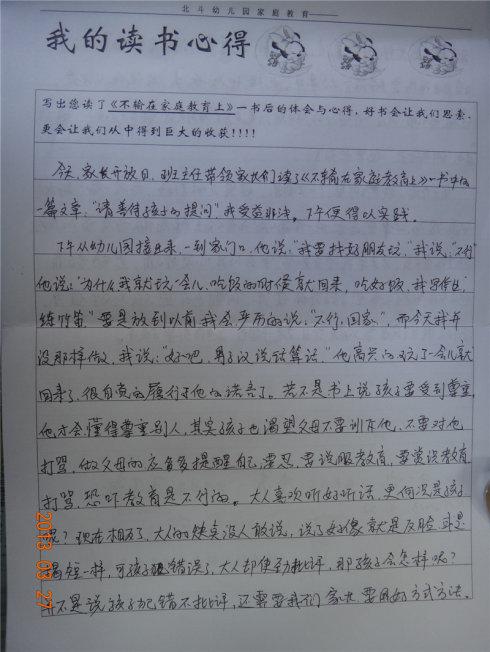 北斗幼儿园家庭教育
我的读书心得
写出您读了《不输在家庭教育上》一书后的体会与心得，好书会让我们思考，
更会让我们从中得到巨大的收获！！！！
今天，家长开放日，班主任带领家长们读了《不输在家庭教育上》一书中的
一篇文章："请善待孩子的提问"我受益非浅。下午便得以实践。
下午从幼儿园接出来，一到家门口，他说："我要找好朋友玩，"我说："不行"
他说："为什么，我就玩一会儿，吃饭的时候就回来，吃好饭，我写作业，
练竹笛。"要是放到以前我会严厉的说："不行，回家"，而今天我并
没那样做，我说："好吧，男子汉说话算话，"他高兴的玩了一会儿就
回来了，很自觉的履行了他的诺言了。若不是书上说孩子要受到尊重，
他才会懂得尊重别人，其实孩子也渴望父母不要训斥他，不要对他
打骂，做父母的应多多提醒自己，要忍，要说服教育，要赏识教育
打骂，恐吓教育是不行的。大人喜欢听好听话，更何况是孩子
呢？现在相反了，大人的缺点没人敢说，说了好像就是反脸
揭短一样，可孩子犯错误了，大人却使劲批评，那孩子会怎样呢？
并不是说孩子犯错不批评，还需要我们家长，要用好方式方法。
2013 03 27